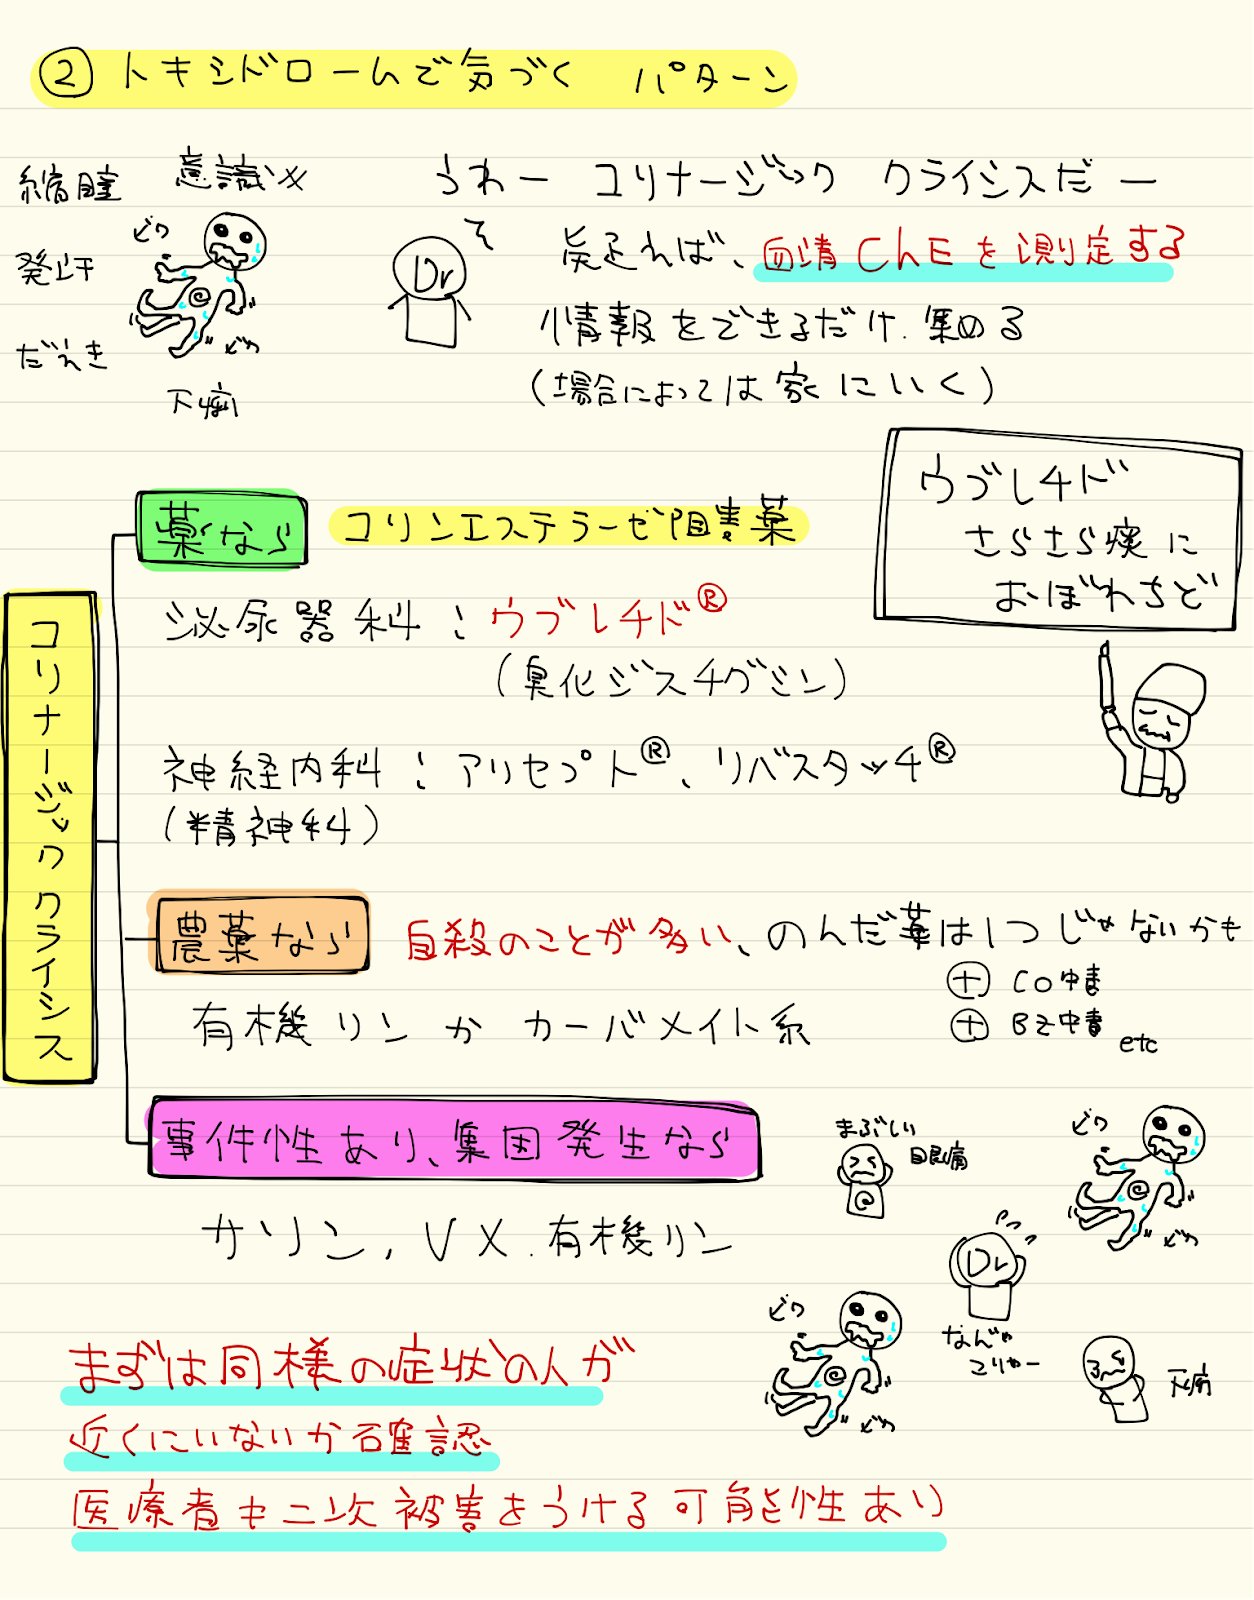 ② トキシドロームで気づく パターン
縮瞳 意識↓
発汗
だえき
下痢
ビク
ビク
うわー コリナージック クライシスだー
Dr
疑えれば、血清ChEを測定する
情報をできるだけ集める
(場合によっては家にいく)
ウブレチド
さらさら痰に
おぼれちど
コリナージック クライシス
薬なら コリンエステラーゼ阻害薬
泌尿器科:ウブレチド®
(臭化ジスチグミン)
神経内科:アリセプト®、リバスタッチ®
(精神科)
農薬なら 自殺のことが多い、のんだ薬は1つじゃないかも
⊕ CO中毒
⊕ BZ中毒
etc
有機リン か カーバメイト系
事件性あり、集団発生なら
サリン、VX、有機リン
まぶしい
眼痛
ビク
ビク
Dr
なんじゃ
こりゃー
ビク
ビク
下痢
まずは同様の症状の人が
近くにいないか確認
医療者も二次被害をうける可能性あり